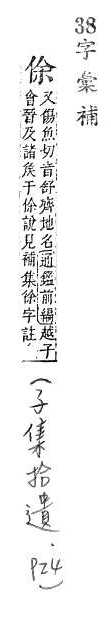 38字彙補
徐
又傷魚切音舒齊地名通鑑前編越子
會晉及諸侯于徐說見補集徐字註
(子集拾遺.P24)